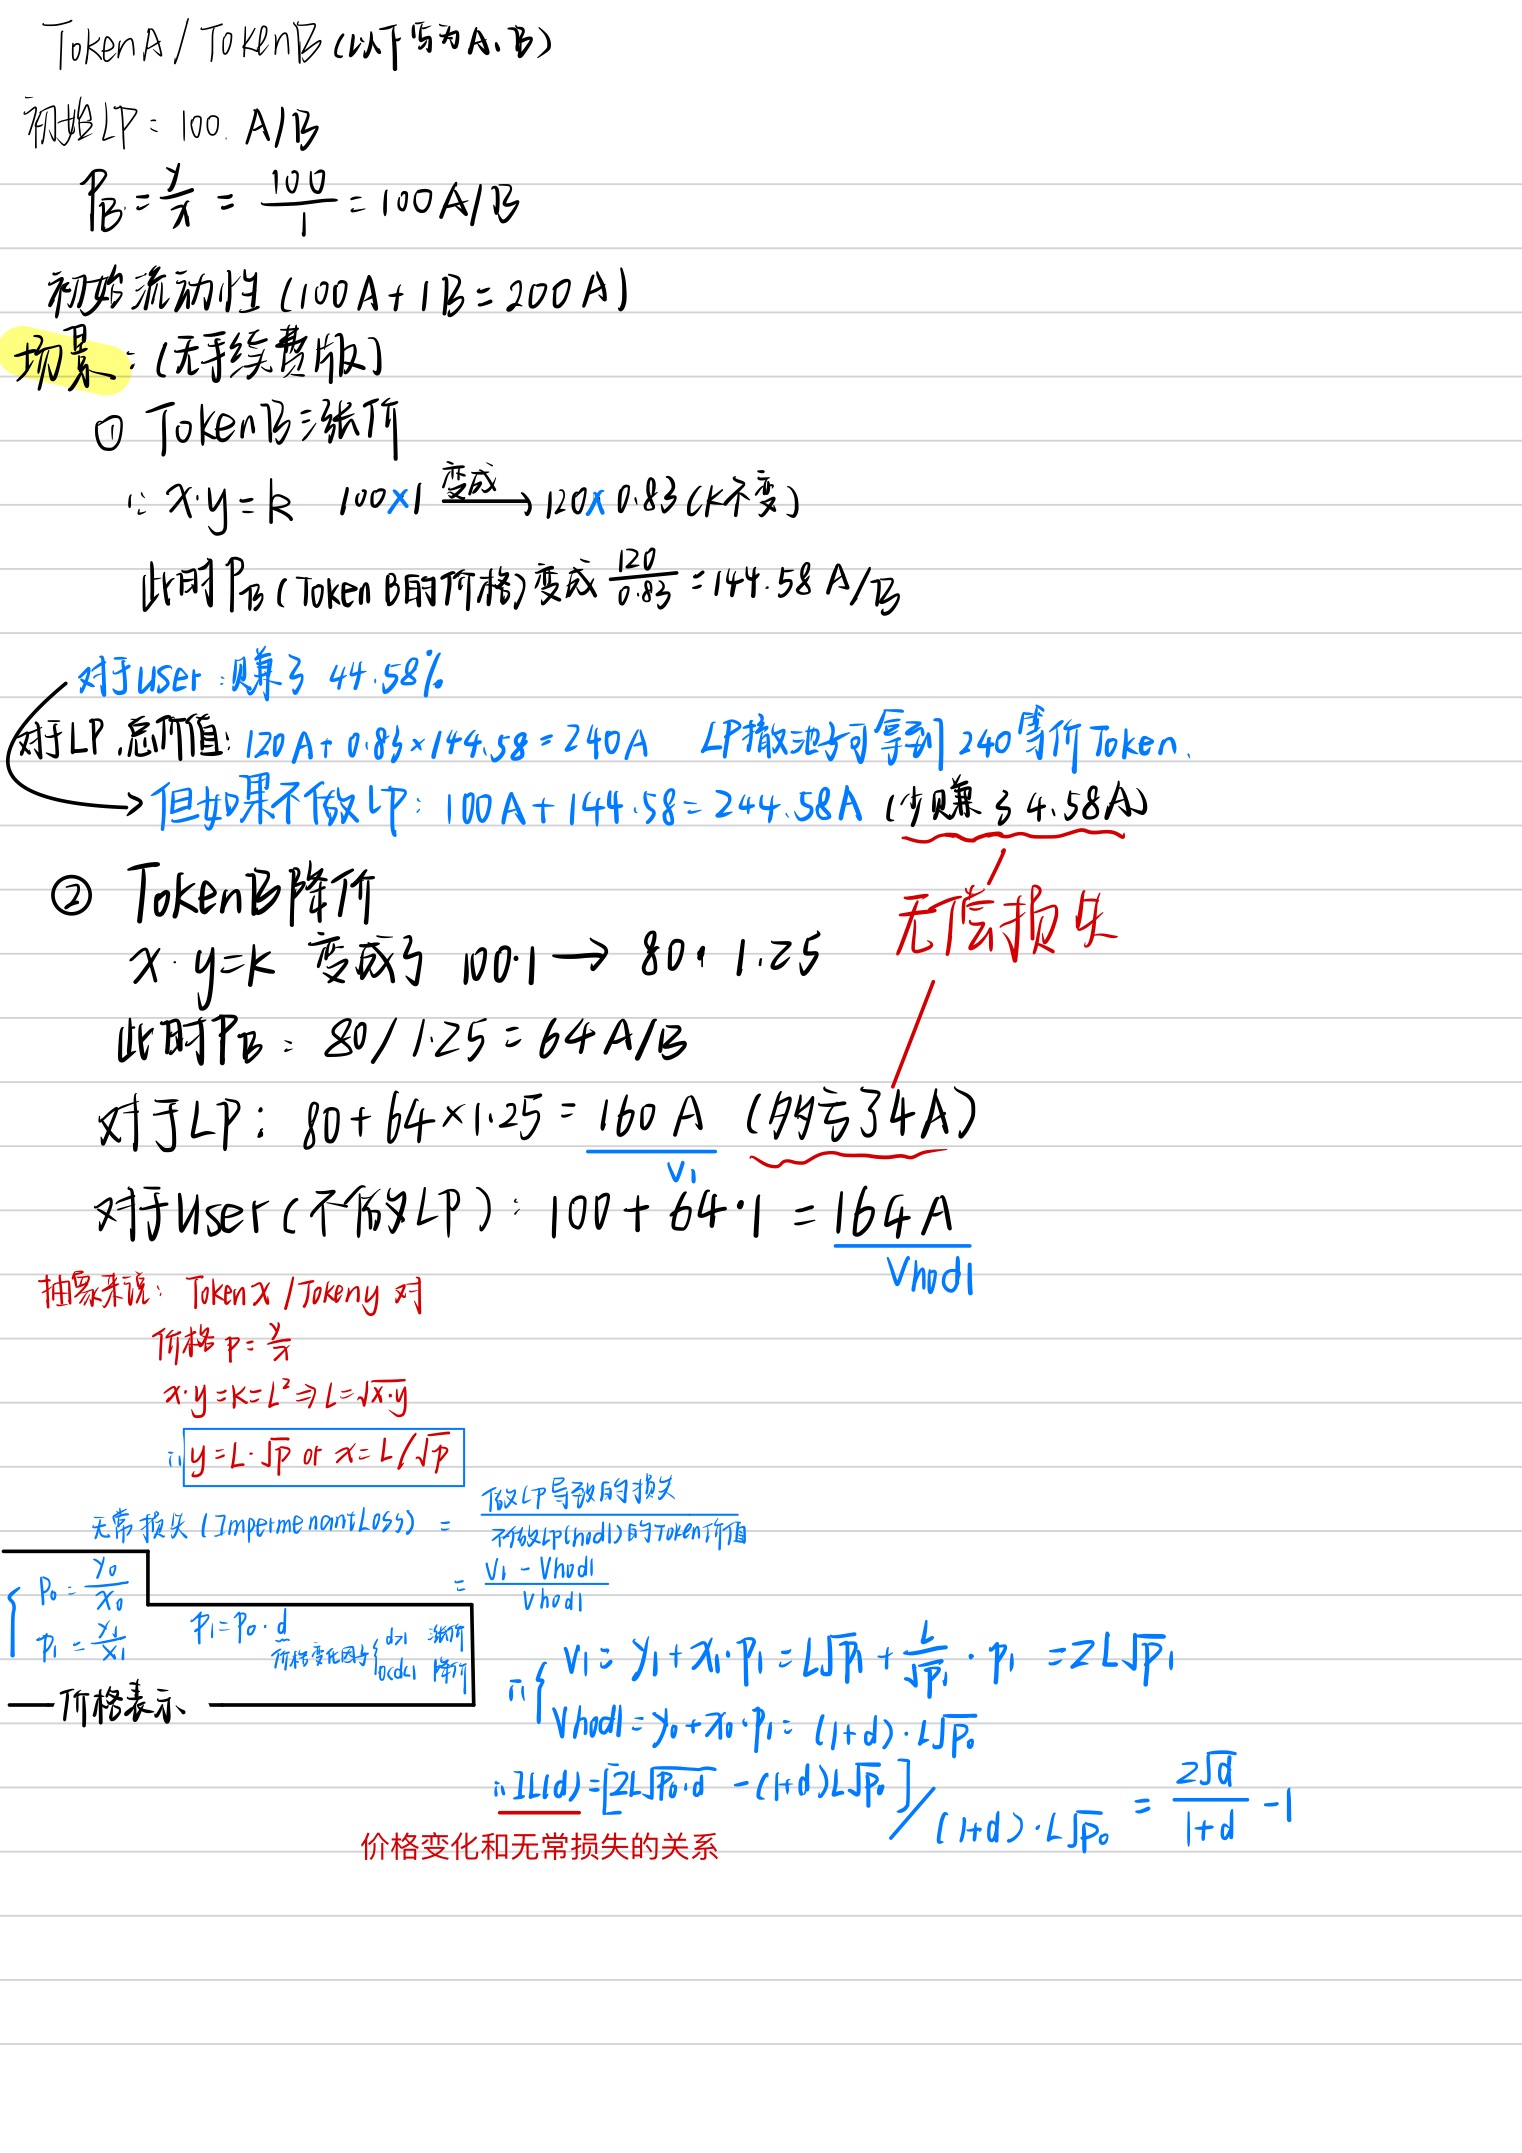 TokenA / TokenB (以下写为A、B)
初始LP: 100 A/B
P_B = y/x = 100/1 = 100A/B
初始流动性 (100A + 1B = 200A)
场景: (无手续费版)
① TokenB涨价
∵ x·y=k 100×1 变成→ 120×0.83 (k不变)
此时P_B (Token B的价格)变成 120/0.83 = 144.58 A/B
对于user: 赚了 44.58%
对于LP,总价值: 120A + 0.83×144.58 = 240A LP撤池子可拿到 240 等价 Token.
→ 但如果不做LP: 100A + 144.58 = 244.58A (少赚了4.58A)
② TokenB降价
无偿损失
x·y=k 变成了 100·1 → 80·1.25
此时P_B: 80/1.25 = 64A/B
对于LP: 80+64×1.25 = 160A (多亏了4A)
V₁
对于user(不做LP): 100+64·1 = 164A
Vhodl
抽象来说: Token x / Token y 对
价格 p = y/x
x·y=k=L² ⇒ L=√x·y
∴ y=L·√p or x=L/√p
无常损失 (Impermenant Loss) = 做LP导致的损失 / 不做LP(hodl)的Token价值
= V₁ - Vhodl / Vhodl
P₀ = y₀/x₀
P₁ = y₁/x₁
P₁=P₀·d
价格变化因子 { d>1 涨价
0<d<1 降价
价格表示
∴ { V₁ = y₁ + x₁·P₁ = L√P₁ + L/√P₁ · P₁ = 2L√P₁
Vhodl = y₀+x₀·P₁ = (1+d)·L√P₀
∴ IL(d) = [2L√P₀·d - (1+d)L√P₀] / (1+d)·L√P₀ = 2√d / 1+d - 1
价格变化和无常损失的关系